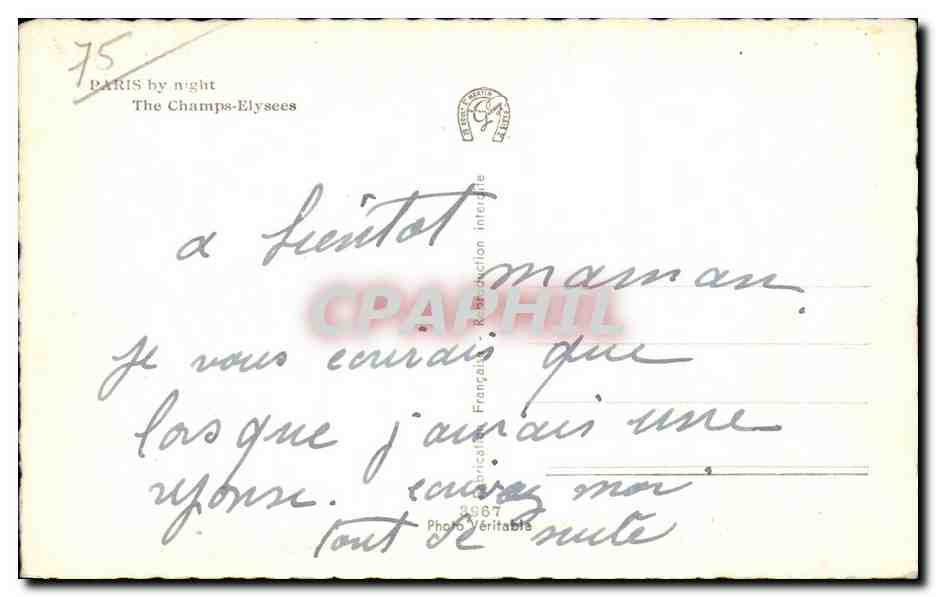 75
PARIS by night
The Champs-Elysees
a bientot
maman.
je vous ecrirais que
lorsque j'aurais une
reponse. ecrivez moi
tout de suite
Fabrication Française - Reproduction interdite
3967
Photo Véritable
CPAPHIL